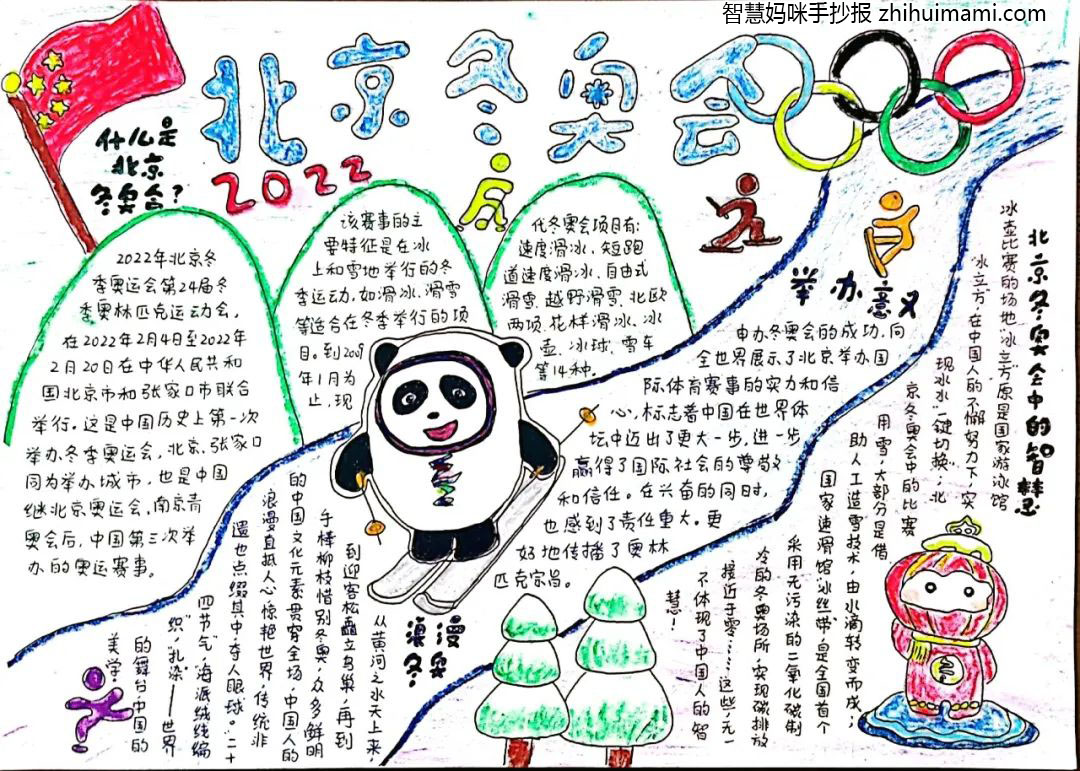 智慧妈咪手抄报 zhihuimami.com
北京冬奥会
2022
什么是
北京
冬奥会?
2022年北京冬
季奥运会第24届冬
季奥林匹克运动会,
在2022年2月4日至2022年
2月20日在中华人民共和
国北京市和张家口市联合
举行。这是中国历史上第一次
举办冬季奥运会,北京、张家口
同为举办城市,也是中国
继北京奥运会,南京青
奥会后,中国第三次举
办的奥运赛事。
该赛事的主
要特征是在冰
上和雪地举行的冬
季运动,如滑冰、滑雪
等适合在冬季举行的项
目。到2009
年1月为
止,现
代冬奥会项目有:
速度滑冰、短跑
道速度滑冰、自由式
滑雪、越野滑雪、北欧
两项、花样滑冰、冰
壶、冰球、雪车
等14种。
举办意义
申办冬奥会的成功,向
全世界展示了北京举办国
际体育赛事的实力和信
心,标志着中国在世界体
坛中迈出了更大一步,进一步
赢得了国际社会的尊敬
和信任。在兴奋的同时,
也感到了责任重大。更
好地传播了奥林
匹克宗旨。
北京冬奥会中的智慧
冰壶比赛的场地“冰立方”原是国家游泳馆
“水立方”在中国人的不懈努力下,实
现冰水“一键切换”;北
京冬奥会中的比赛
用雪,大部分是借
助人工造雪技术,由水滴转变而成;
国家速滑馆“冰丝带”是全国首个
采用无污染的二氧化碳制
冷的冬奥场所,实现碳排放
接近于零……这些,无一
不体现了中国人的智
慧!
浪漫
冬奥
从黄河之水天上来,
到迎客松矗立鸟巢,再到
手棒柳枝惜别冬奥,众多鲜明
的中国文化元素贯穿全场,中国人的
浪漫直抵人心,惊艳世界,传统非
遗也点缀其中夺人眼球。“二十
四节气”海派绒线编
织,扎染——世界
的舞台中国的
美学。